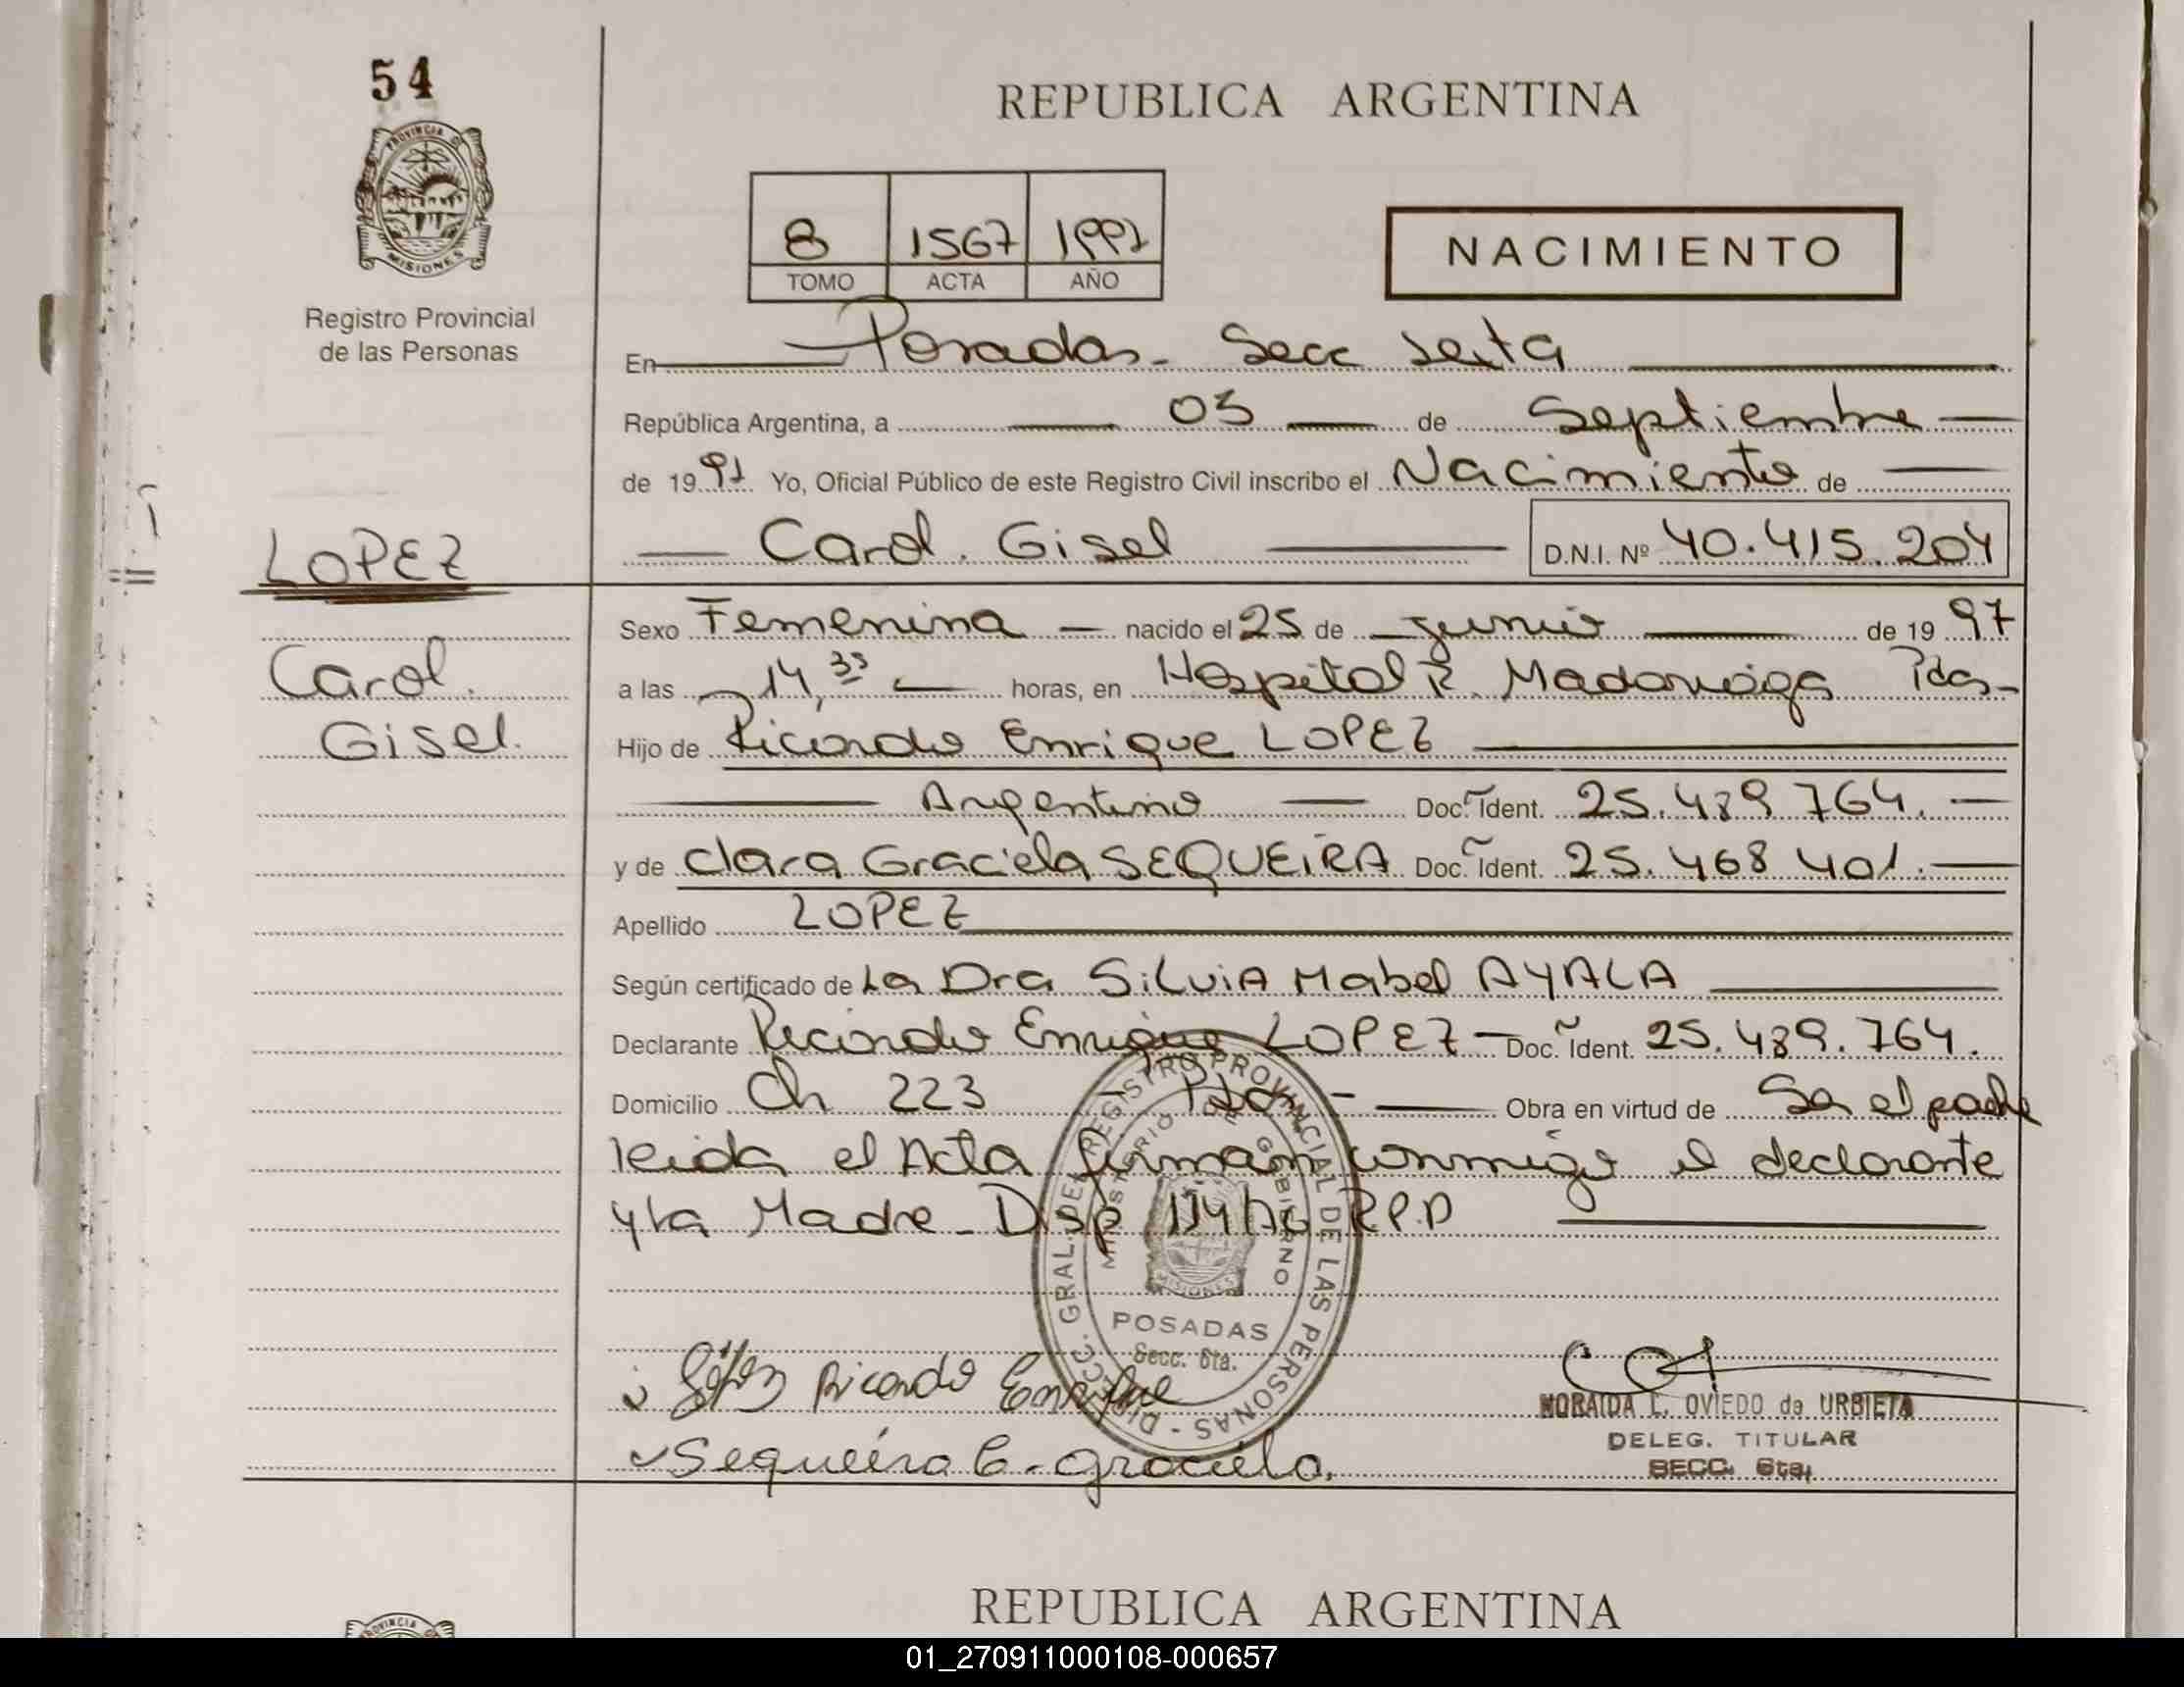 54
PROVINCIA D
MISIONES
Registro Provincial
de las Personas
REPUBLICA ARGENTINA
8 1567 1997
TOMO ACTA AÑO
NACIMIENTO
En Posadas - Secc Sexta
República Argentina, a 03 de Septiembre
de 1997 Yo, Oficial Público de este Registro Civil inscribo el Nacimiento de
LOPEZ
Carol. Gisel D.N.I. Nº 40.415.204
Sexo Femenina nacido el 25 de junio de 1997
Carol.
a las 14,35 horas, en Hospital R. Madariaga Pdas-
Gisel.
Hijo de Ricardo Enrique LOPEZ
Argentino Doc. Ident. 25.489.764.
y de Clara Graciela SEQUEIRA Doc. Ident. 25.468 401.
Apellido LOPEZ
Según certificado de La Dra SiLviA Mabel AYALA
Declarante Ricardo Enrique LOPEZ - Doc. Ident. 25.489.764.
Domicilio Ch 223 Pdas - Obra en virtud de Ser el padre
leida el Acta firman conmigo el declarante
y La Madre - Disp 114/96 R.P.P
DIRECC. GRAL. DEL REGISTRO PROVINCIAL DE LAS PERSONAS -
MINISTERIO DE GOBIERNO
MISIONES
POSADAS
Secc. 6ta.
López Ricardo Enrique
Sequeira C. graciela.
NORAIDA L. OVIEDO de URBIETA
DELEG. TITULAR
SECC. 6ta,
REPUBLICA ARGENTINA
PROVINCIA
01_270911000108-000657